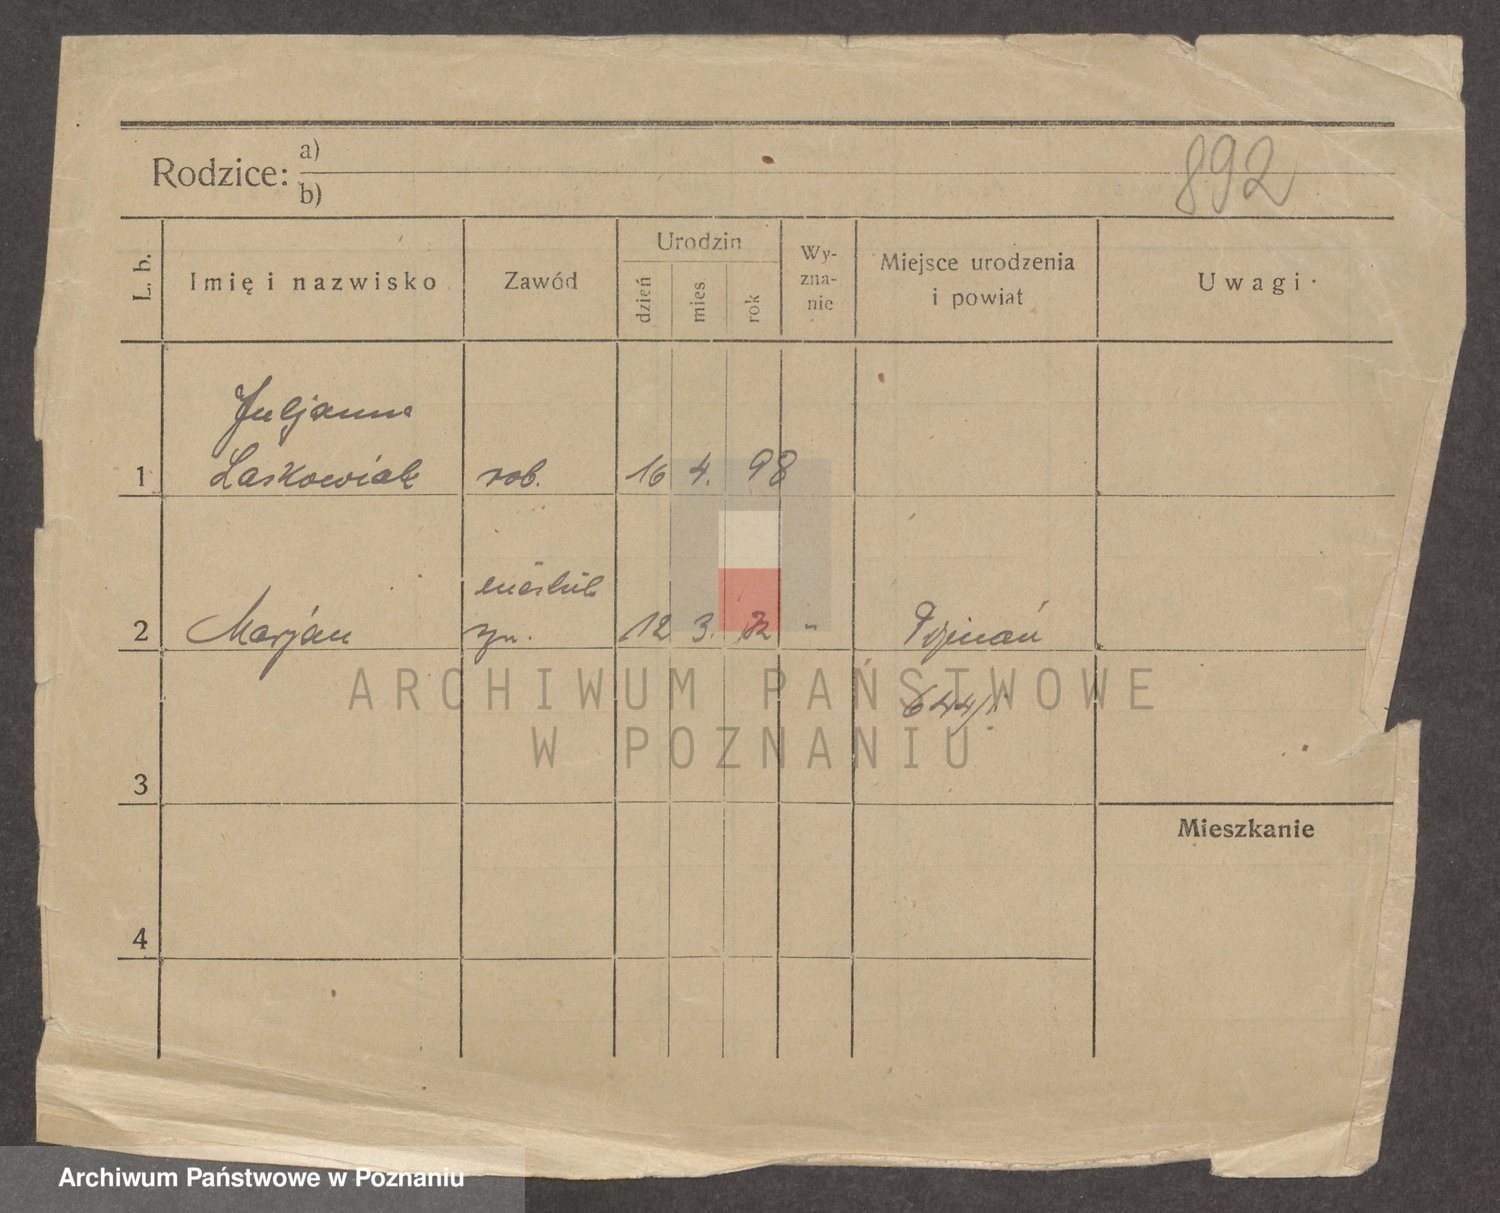 892
Rodzice: a)
b)
L. b.
Imię i nazwisko
Zawód
Urodzin
dzień
mies
rok
Wy-
zna-
nie
Miejsce urodzenia
i powiat
Uwagi
Juljanna
1 Laskowiak rob. 16 4. 98
nieślub
2 Marjan syn. 12 3. 32 - Poznań
644/
ARCHIWUM PAŃSTWOWE
W POZNANIU
3
Mieszkanie
4
Archiwum Państwowe w Poznaniu